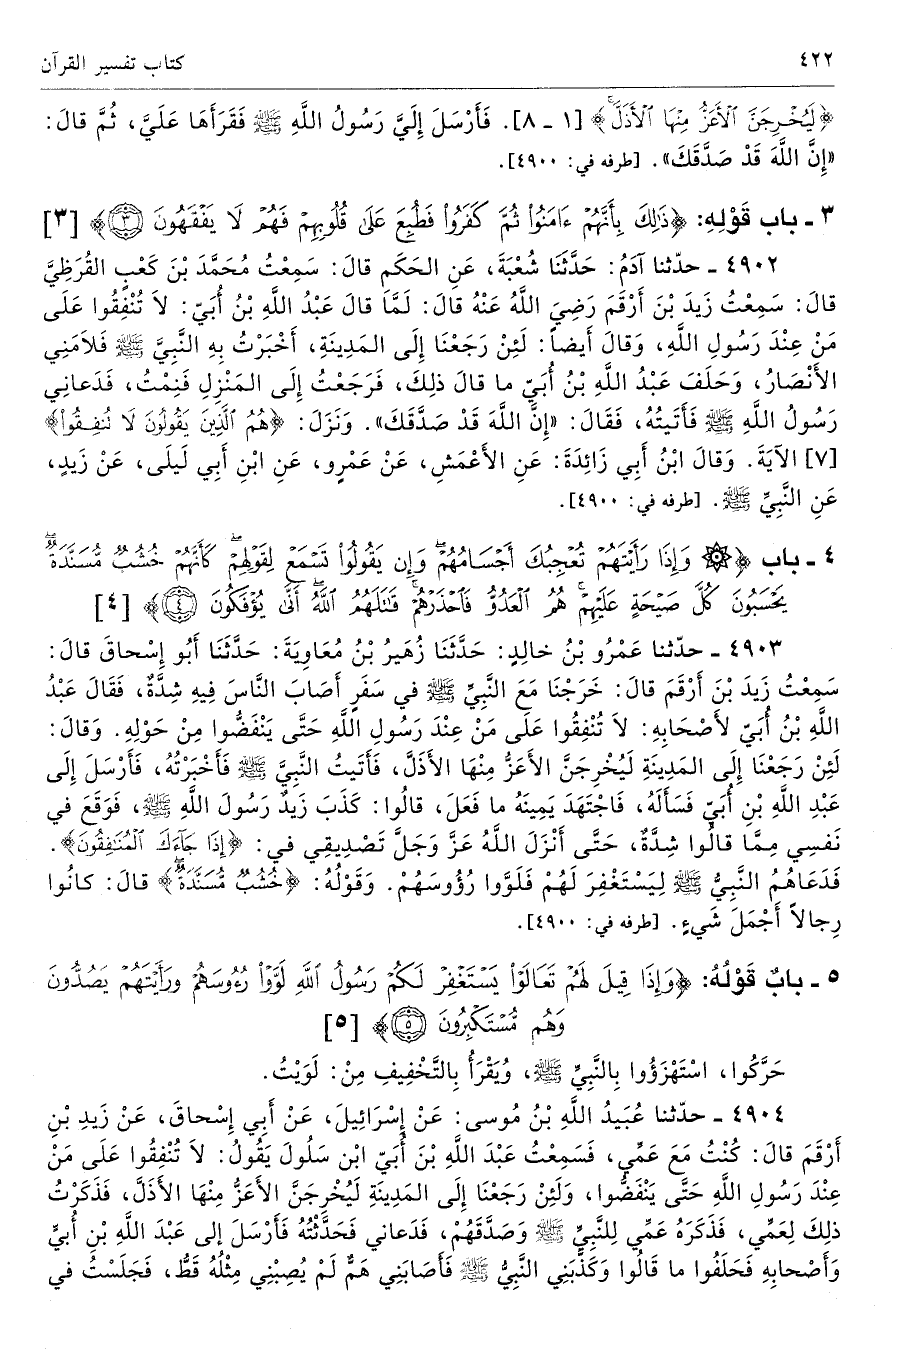 ٤٢٢ كتاب تفسير القرآن
﴿لَيُخْرِجَنَّ ٱلْأَعَزُّ مِنْهَا ٱلْأَذَلَّۚ﴾ [١ ـ ٨]. فَأَرْسَلَ إِلَيَّ رَسُولُ اللَّهِ ﷺ فَقَرَأَهَا عَلَيَّ، ثُمَّ قالَ:
«إِنَّ اللَّهَ قَدْ صَدَّقَكَ». [طرفه في: ٤٩٠٠].
٣ ـ باب قَوْلِهِ: ﴿ذَٰلِكَ بِأَنَّهُمْ ءَامَنُوا۟ ثُمَّ كَفَرُوا۟ فَطُبِعَ عَلَىٰ قُلُوبِهِمْ فَهُمْ لَا يَفْقَهُونَ ٣﴾ [٣]
٤٩٠٢ ـ حدّثنا آدَمُ: حَدَّثَنَا شُعْبَةَ، عَنِ الحَكَمِ قالَ: سَمِعْتُ مُحَمَّدَ بْنَ كَعْبٍ القُرَظِيَّ
قالَ: سَمِعْتُ زَيدَ بْنَ أَرْقَمَ رَضِيَ اللَّهُ عَنْهُ قالَ: لَمَّا قالَ عَبْدُ اللَّهِ بْنُ أُبَيّ: لاَ تُنْفِقُوا عَلَى
مَنْ عِنْدَ رَسُولِ اللَّهِ، وَقالَ أَيضاً: لَئِنْ رَجَعْنَا إِلَى المَدِينَةِ، أَخْبَرْتُ بِهِ النَّبِيَّ ﷺ فَلاَمَنِي
الأَنْصَارُ، وَحَلَفَ عَبْدُ اللَّهِ بْنُ أُبَيّ ما قالَ ذلِكَ، فَرَجَعْتُ إِلَى المَنْزِلِ فَنِمْتُ، فَدَعانِي
رَسُولُ اللَّهِ ﷺ فَأَتَيتُهُ، فَقَالَ: «إِنَّ اللَّهَ قَدْ صَدَّقَكَ». وَنَزَلَ: ﴿هُمُ ٱلَّذِينَ يَقُولُونَ لَا تُنفِقُوا۟﴾
[٧] الآيَةَ. وَقالَ ابْنُ أَبِي زَائِدَةَ: عَنِ الأَعْمَشِ، عَنْ عَمْرٍو، عَنِ ابْنِ أَبِي لَيلَى، عَنْ زَيدٍ،
عَنِ النَّبِيِّ ﷺ. [طرفه في: ٤٩٠٠].
٤ ـ باب ﴿۞ وَإِذَا رَأَيْتَهُمْ تُعْجِبُكَ أَجْسَامُهُمْۖ وَإِن يَقُولُوا۟ تَسْمَعْ لِقَوْلِهِمْۖ كَأَنَّهُمْ خُشُبٌ مُّسَنَّدَةٌۖ
يَحْسَبُونَ كُلَّ صَيْحَةٍ عَلَيْهِمْۚ هُمُ ٱلْعَدُوُّ فَٱحْذَرْهُمْۚ قَٰتَلَهُمُ ٱللَّهُۖ أَنَّىٰ يُؤْفَكُونَ ٤﴾ [٤]
٤٩٠٣ ـ حدّثنا عَمْرُو بْنُ خالِدٍ: حَدَّثَنَا زُهَيرُ بْنُ مُعَاوِيَةَ: حَدَّثَنَا أَبُو إِسْحاقَ قالَ:
سَمِعْتُ زَيدَ بْنَ أَرْقَمَ قالَ: خَرَجْنَا مَعَ النَّبِيِّ ﷺ في سَفَرٍ أَصَابَ النَّاسَ فِيهِ شِدَّةٌ، فَقَالَ عَبْدُ
اللَّهِ بْنُ أُبَيّ لأَصْحَابِهِ: لاَ تُنْفِقُوا عَلَى مَنْ عِنْدَ رَسُولِ اللَّهِ حَتَّى يَنْفَضُّوا مِنْ حَوْلِهِ. وَقالَ:
لَئِنْ رَجَعْنَا إِلَى المَدِينَةِ لَيُخْرِجَنَّ الأَعَزُّ مِنْهَا الأَذَلَّ، فَأَتَيتُ النَّبِيَّ ﷺ فَأَخْبَرْتُهُ، فَأَرْسَلَ إِلَى
عَبْدِ اللَّهِ بْنِ أُبَيّ فَسَأَلَهُ، فَاجْتَهَدَ يَمِينَهُ ما فَعَلَ، قالُوا: كَذَبَ زَيدٌ رَسُولَ اللَّهِ ﷺ، فَوَقَعَ في
نَفسِي مِمَّا قالُوا شِدَّةٌ، حَتَّى أَنْزَلَ اللَّهُ عَزَّ وَجَلَّ تَصْدِيقِي في: ﴿إِذَا جَآءَكَ ٱلْمُنَٰفِقُونَ﴾.
فَدَعَاهُمُ النَّبِيُّ ﷺ لِيَسْتَغْفِرَ لَهُمْ فَلَوَّوا رُؤُوسَهُمْ. وَقَوْلُهُ: ﴿خُشُبٌ مُّسَنَّدَةٌۖ﴾ قالَ: كانُوا
رِجالاً أَجْمَلَ شَيءٍ. [طرفه في: ٤٩٠٠].
٥ ـ بابٌ قَوْلُهُ: ﴿وَإِذَا قِيلَ لَهُمْ تَعَالَوْا۟ يَسْتَغْفِرْ لَكُمْ رَسُولُ ٱللَّهِ لَوَّوْا۟ رُءُوسَهُمْ وَرَأَيْتَهُمْ يَصُدُّونَ
وَهُم مُّسْتَكْبِرُونَ ٥﴾ [٥]
حَرَّكُوا، اسْتَهْزَؤُوا بِالنَّبِيِّ ﷺ، وَيُقْرَأُ بِالتَّخْفِيفِ مِنْ: لَوَيْتُ.
٤٩٠٤ ـ حدّثنا عُبَيدُ اللَّهِ بْنُ مُوسى: عَنْ إِسْرَائِيلَ، عَنْ أَبِي إِسْحاقَ، عَنْ زَيدِ بْنِ
أَرْقَمَ قالَ: كُنْتُ مَعَ عَمِّي، فَسَمِعْتُ عَبْدَ اللَّهِ بْنَ أُبَيّ ابْنِ سَلُولَ يَقُولُ: لاَ تُنْفِقُوا عَلَى مَنْ
عِنْدَ رَسُولِ اللَّهِ حَتَّى يَنْفَضُّوا، وَلَئِنْ رَجَعْنَا إِلَى المَدِينَةِ لَيُخْرِجَنَّ الأَعَزُّ مِنْهَا الأَذَلَّ، فَذَكَرْتُ
ذلِكَ لِعَمِّي، فَذَكَرَهُ عَمِّي لِلنَّبِيِّ ﷺ وَصَدَّقَهُمْ، فَدَعانِي فَحَدَّثْتُهُ فَأَرْسَلَ إِلى عَبْدَ اللَّهِ بْنِ أُبيٍّ
وَأَصْحابِهِ فَحَلَفُوا ما قَالُوا وَكَذَّبَنِي النَّبِيُّ ﷺ فَأَصَابَنِي هَمٌّ لَمْ يُصِبْنِي مِثْلُهُ قَطُّ، فَجَلَسْتُ في